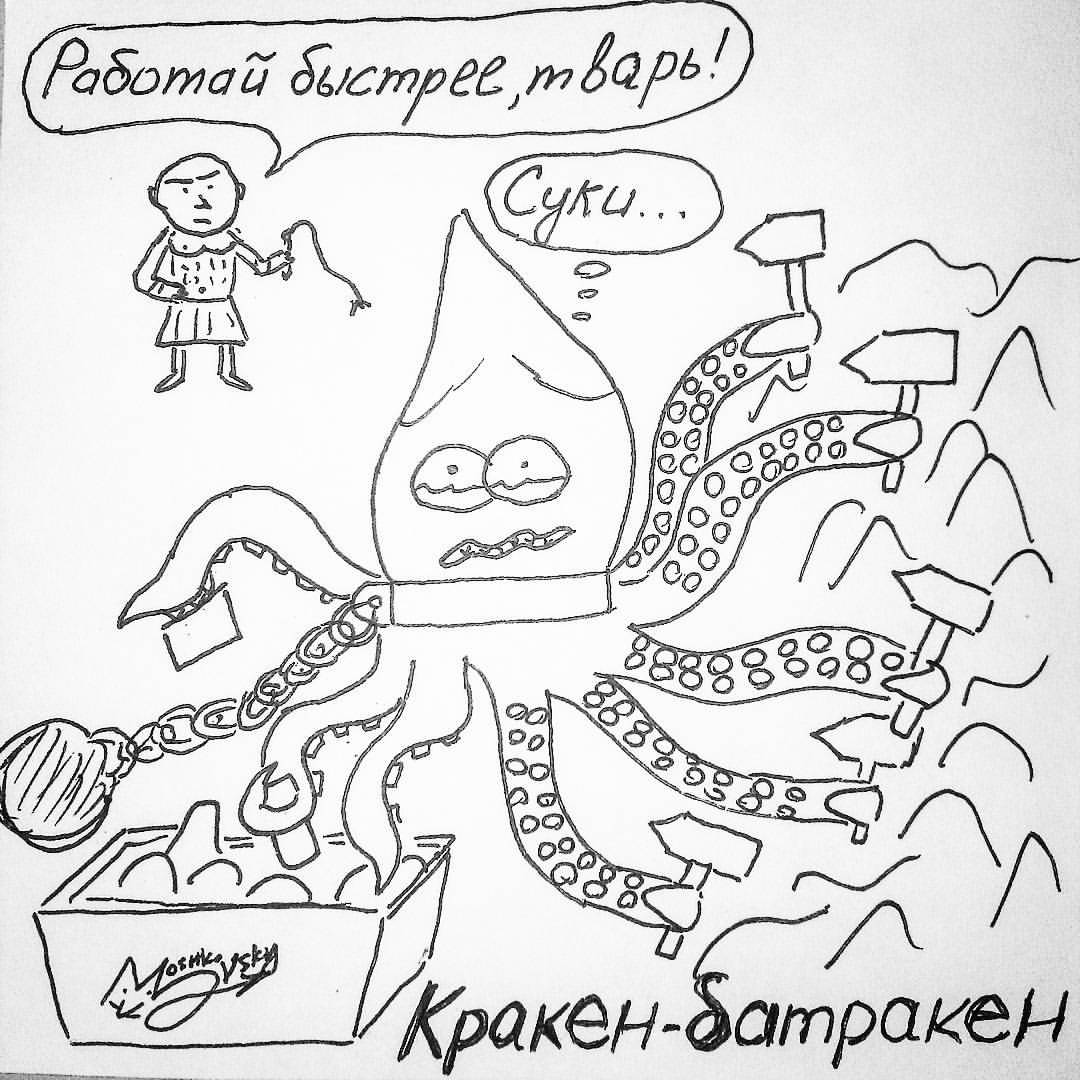 Работай быстрее, тварь!
Суки...
Moshkovsky
Кракен-батракен